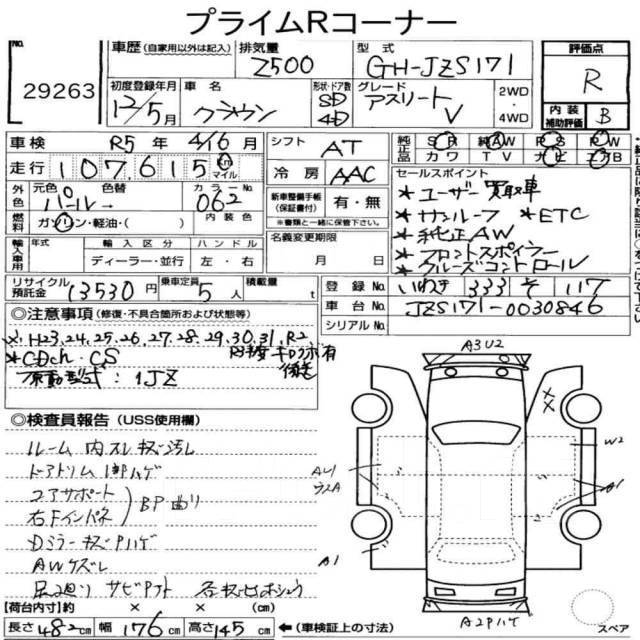 プライムRコーナー
No. 29263
車歴 (自家用以外は記入)
排気量 2500
型式 GH-JZS171
評価点 R
初度登録年月 12/5月
車名 クラウン
形状・ドア数 SD 4D
グレード アスリートV
2WD・4WD
内装補助評価 B
車検 R5年 4/16月
シフト AT
純正品 SR 純AW PS PW
カワ TV ナビ エアB
走行 107,615 km マイル
冷房 AAC
外色 元色 パール 色替
カラーNo. 062
新車整備手帳(保証書付) 有・無
※書類と一緒に保管下さい。
燃料 ガソリン・軽油・( )
内装色
名義変更期限 月 日
セールスポイント
*ユーザー買取車
*サンルーフ *ETC
*純正AW
*フロントスポイラー
*クルーズコントロール
輸入車用 年式 輸入区分 ハンドル
ディーラー・並行 左・右
リサイクル預託金 13530円
乗車定員 5人
積載量 t
登録No. いわき 333 そ 117
車台No. JZS171-0030846
シリアルNo.
◎注意事項 (修復・不具合箇所および状態等)
※H23,24,25,26,27,28,29,30,31,R2
*CDch・CS
原動型式:1JZ
◎検査員報告 (USS使用欄)
ルーム内スレキズ汚れ
ドアトリム1部ハゲ
コアサポート
右Fインパネ
BP曲り
DミラーキズPハゲ
AWケズレ
足廻りサビ
【荷台内寸】約 × × (cm)
長さ482cm 幅176cm 高さ145cm
←(車検証上の寸法)
A3U2
XX
W2
A1
A1
A2Pハゲ
スペア